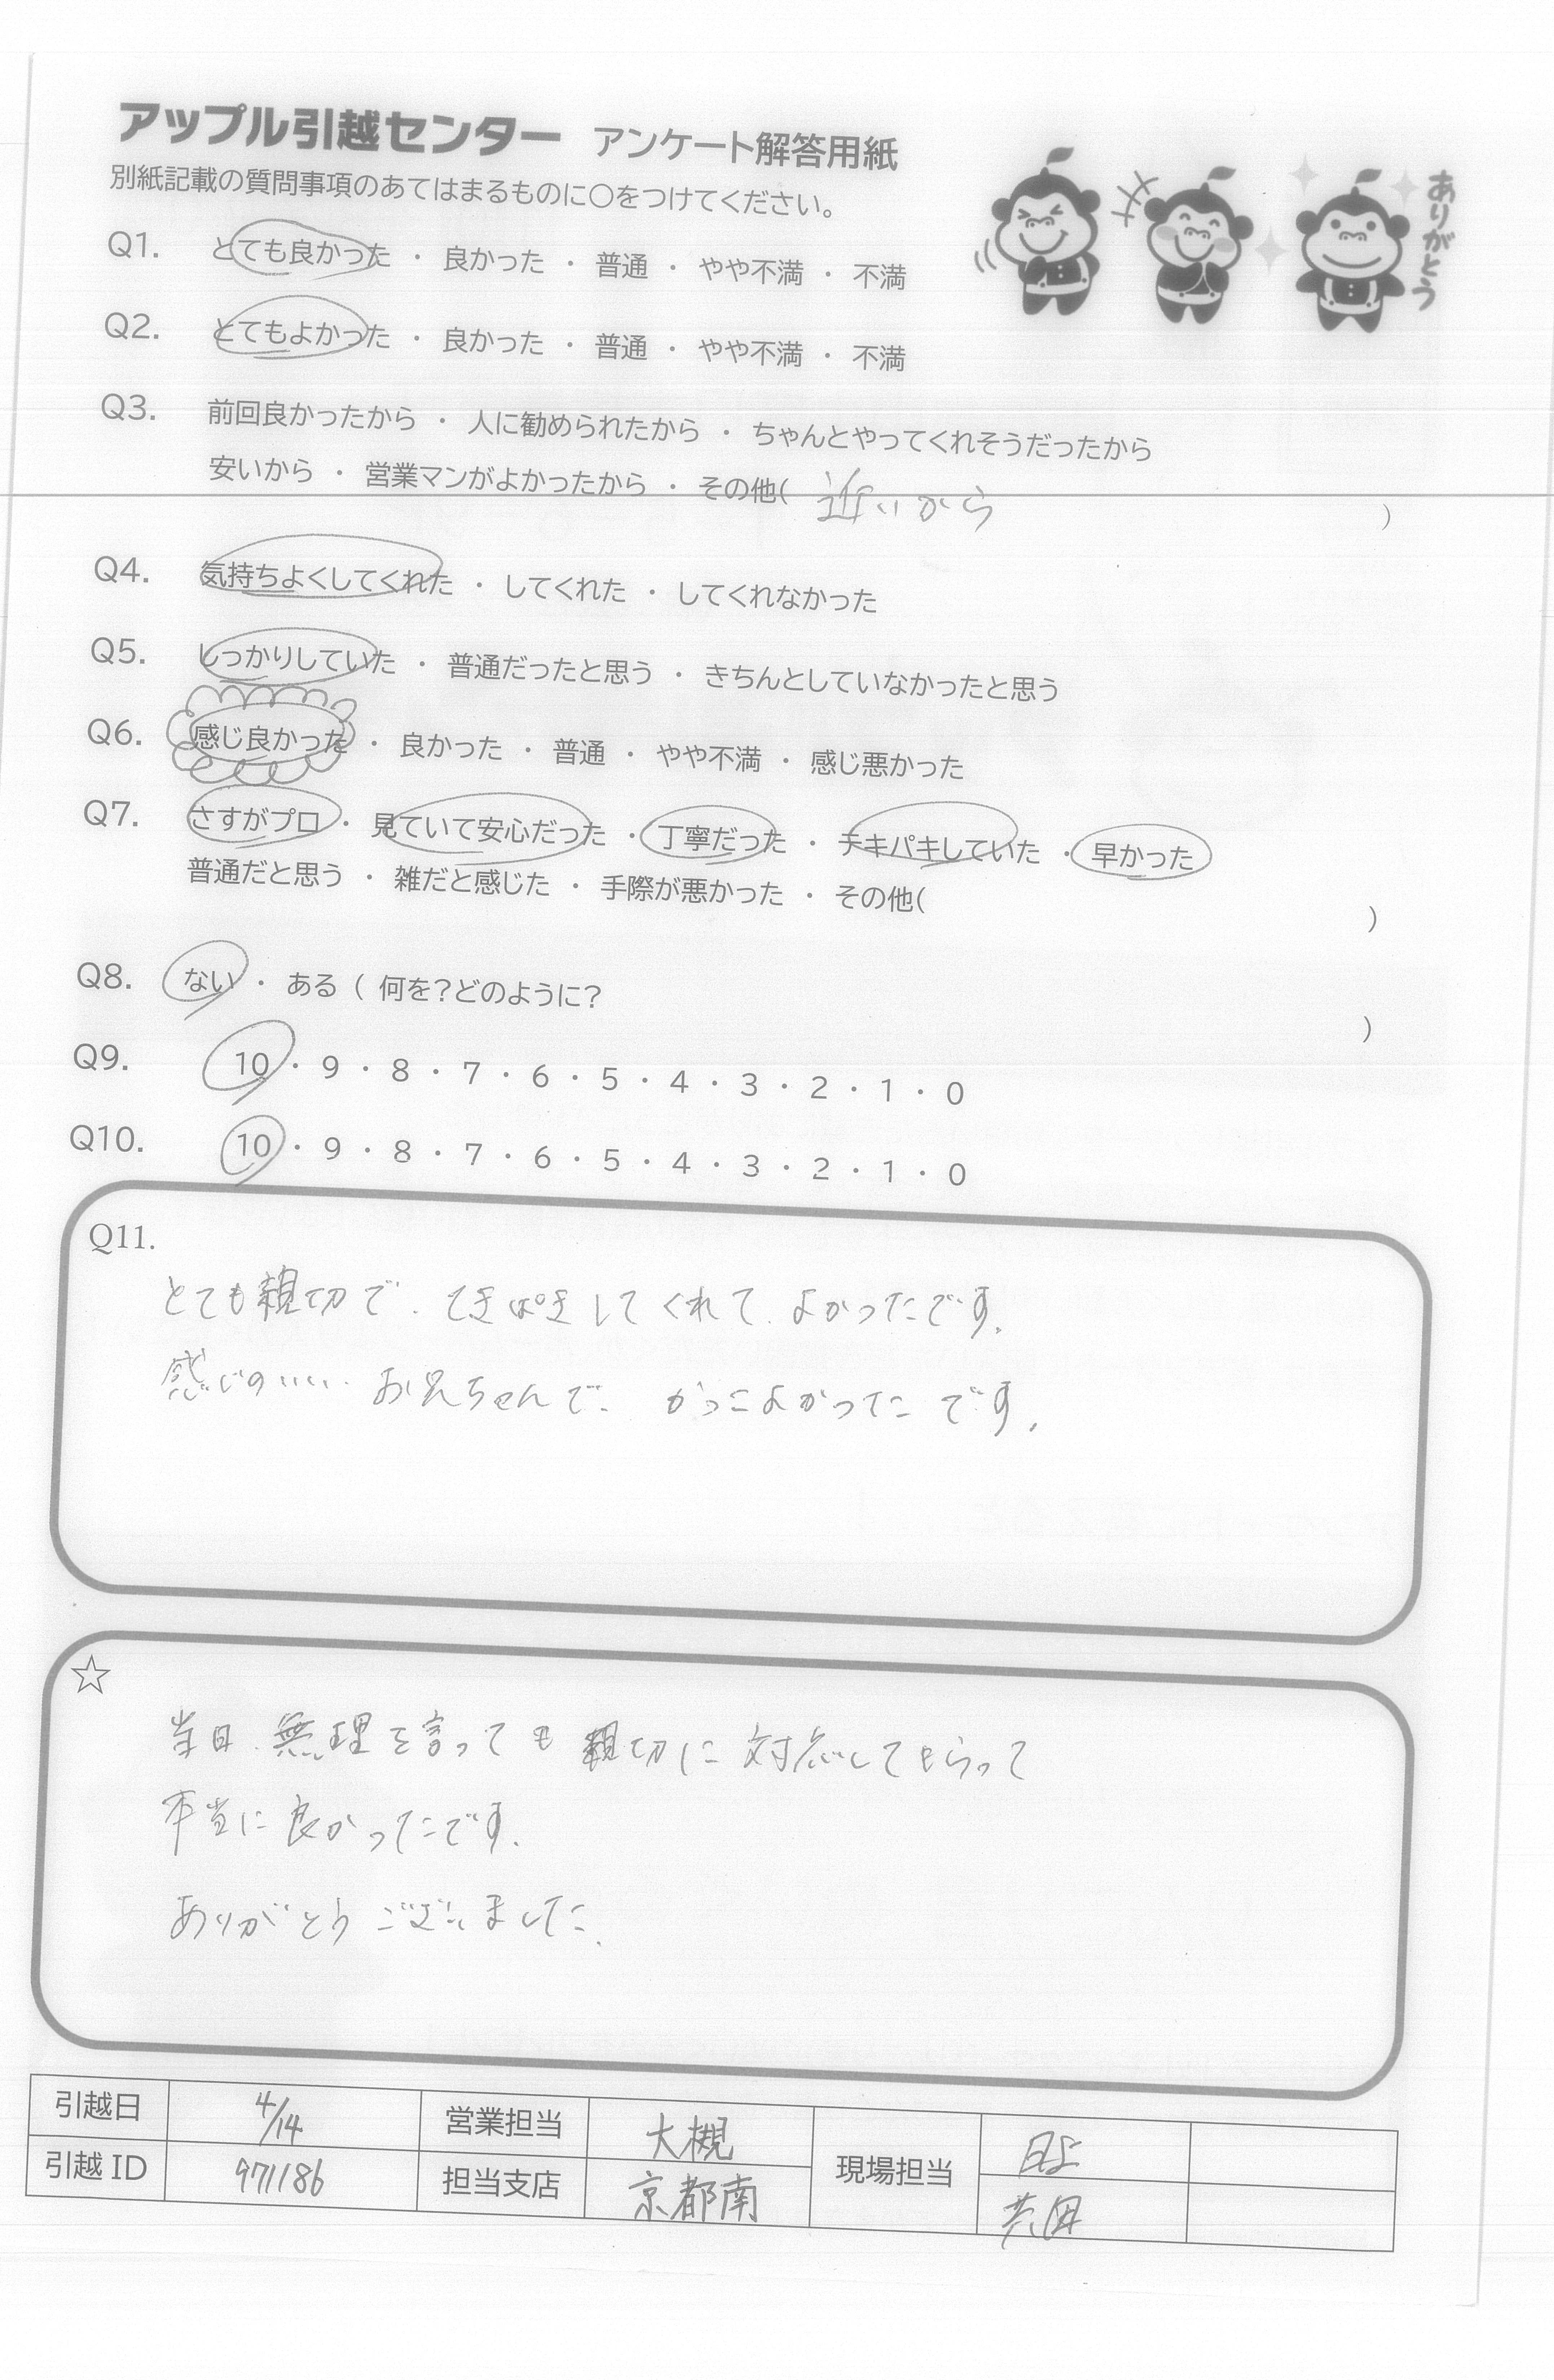 アップル引越センター アンケート解答用紙
別紙記載の質問事項のあてはまるものに〇をつけてください。
ありがとう
Q1. とても良かった ・ 良かった ・ 普通 ・ やや不満 ・ 不満
Q2. とてもよかった ・ 良かった ・ 普通 ・ やや不満 ・ 不満
Q3. 前回良かったから ・ 人に勧められたから ・ ちゃんとやってくれそうだったから
安いから ・ 営業マンがよかったから ・ その他( 近いから )
Q4. 気持ちよくしてくれた ・ してくれた ・ してくれなかった
Q5. しっかりしていた ・ 普通だったと思う ・ きちんとしていなかったと思う
Q6. 感じ良かった ・ 良かった ・ 普通 ・ やや不満 ・ 感じ悪かった
Q7. さすがプロ ・ 見ていて安心だった ・ 丁寧だった ・ テキパキしていた ・ 早かった
普通だと思う ・ 雑だと感じた ・ 手際が悪かった ・ その他( )
Q8. ない ・ ある ( 何を?どのように? )
Q9. 10 ・ 9 ・ 8 ・ 7 ・ 6 ・ 5 ・ 4 ・ 3 ・ 2 ・ 1 ・ 0
Q10. 10 ・ 9 ・ 8 ・ 7 ・ 6 ・ 5 ・ 4 ・ 3 ・ 2 ・ 1 ・ 0
Q11.
とても親切で、てきぱきしてくれて、よかったです。
感じのいい お兄ちゃんで、かっこよかったです。
☆
当日、無理を言っても 親切に 対応してもらって
本当に 良かったです。
ありがとう ございました。
引越日 4/14 営業担当 大槻 現場担当
引越 ID 971186 担当支店 京都南